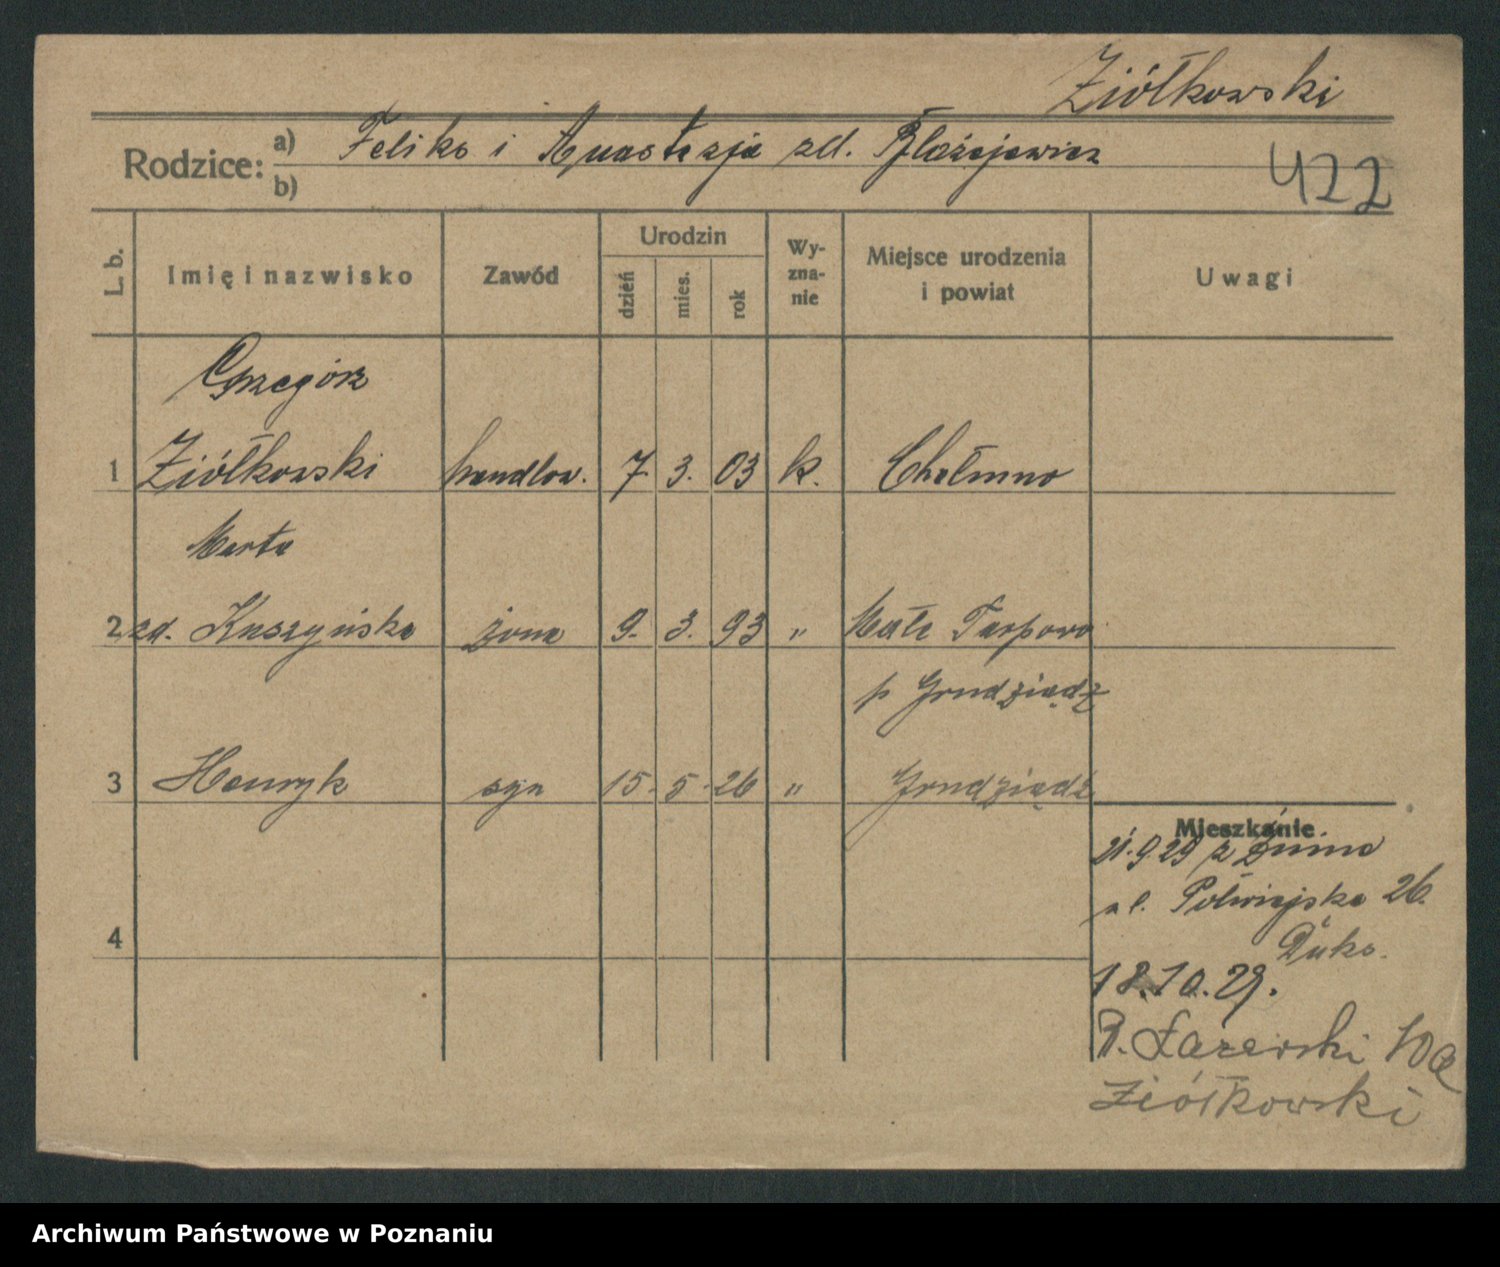 Ziółkowski
Rodzice: a) Feliks i Anastazja zd. Błażejewicz
b)
422
L. b. Imię i nazwisko Zawód Urodzin dzień mies. rok Wy-zna-nie Miejsce urodzenia i powiat Uwagi
Grzegórz
1 Ziółkowski handlow. 7. 3. 03 k. Chełmno
Marta
2 zd. Kuszyńska żona 9. 3. 93 " Małe Tarpowo
p Grudziądz
3 Henryk syn 15. 5. 26 " Grudziądz
Mieszkanie
21.9.29 z Żnina
ul. Półwiejska 26.
4
18.10.29.
R. Łazarski 10a
Ziółkowski
Archiwum Państwowe w Poznaniu